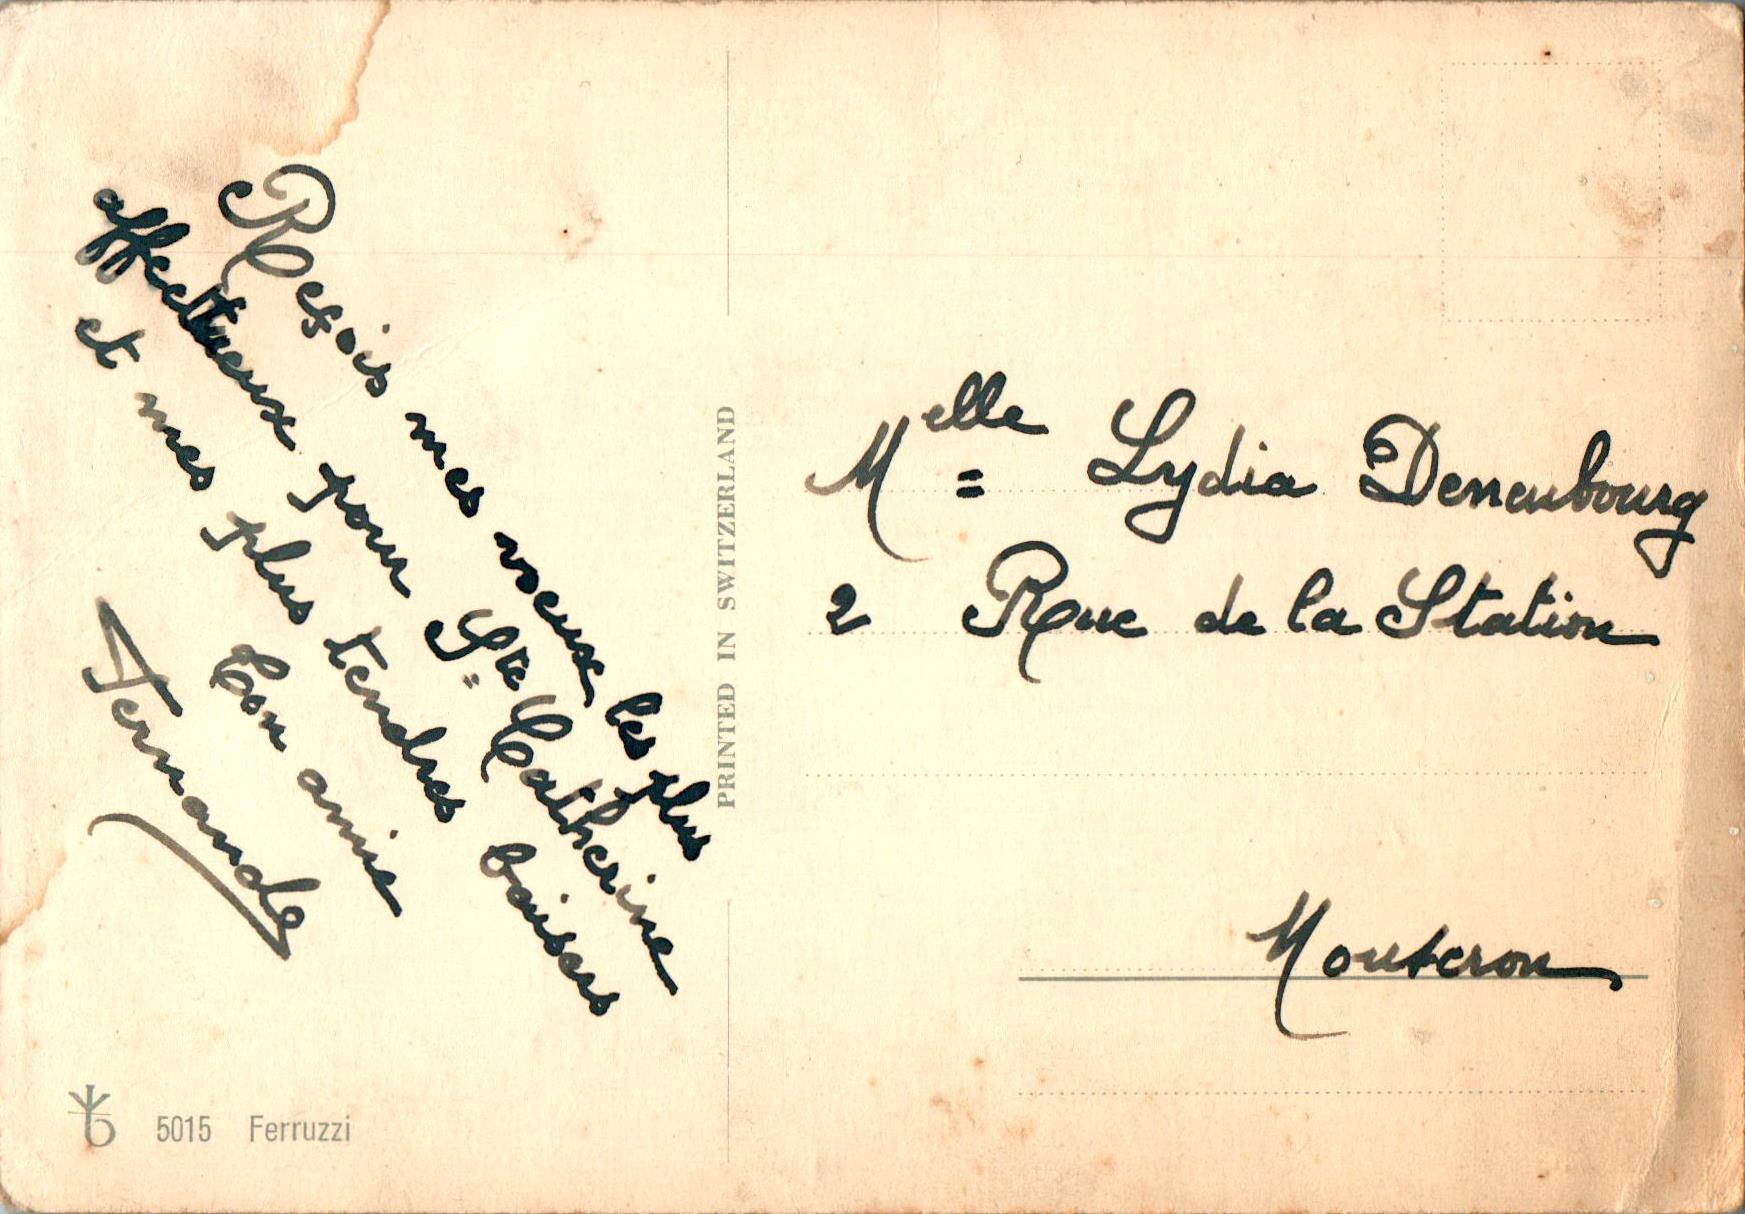 Reçois mes voeux les plus
affectueux pour Ste Catherine
et mes plus tendres baisers
Ton amie
Fernande
5015 Ferruzzi
PRINTED IN SWITZERLAND
Melle Lydia Deneubourg
2 Rue de la Station
Mouscron